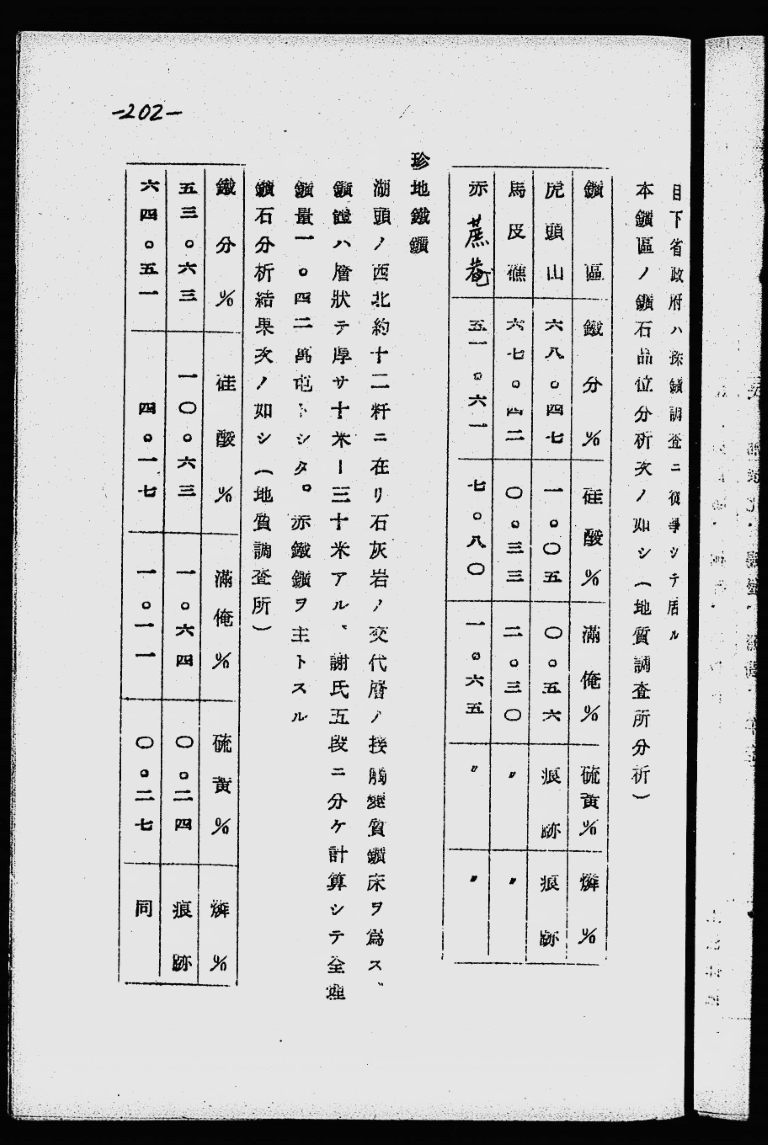 -202-
目下省政府ハ採鑛調査ニ從事シテ居ル
本鑛區ノ鑛石品位分析次ノ如シ(地質調査所分析)
鑛區 鐵分% 硅酸% 滿俺% 硫黃% 燐%
虎頭山 六八。四七 一。〇五 〇。五六 痕跡 痕跡
馬皮礁 六七。四二 〇。三三 二。三〇 〃 〃
赤蔗菴 五一。六一 七。八〇 一。六五 〃 〃
珍地鐵鑛
湖頭ノ西北約十二粁ニ在リ石灰岩ノ交代層ノ接觸變質鑛床ヲ爲ス、
鑛體ハ層狀テ厚サ十米ー三十米アル、謝氏五段ニ分ケ計算シテ全埋
鑛量一。四二萬屯トシタ。赤鐵鑛ヲ主トスル
鑛石分析結果次ノ如シ(地質調査所)
鐵分% 硅酸% 滿俺% 硫黃% 燐%
五三。六三 一〇。六三 一。六四 〇。二四 痕跡
六四。五一 四。一七 一。一一 〇。二七 同